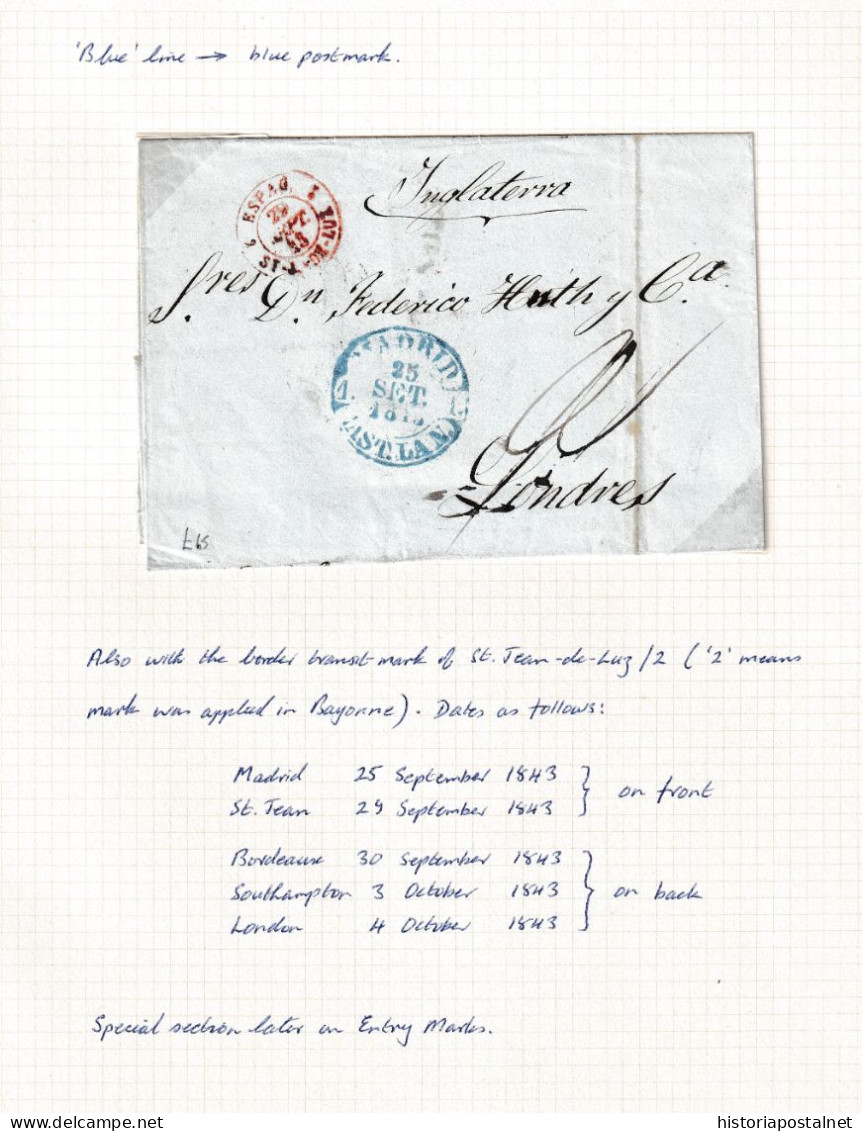 'Blue' line → blue postmark.
Inglaterra
ESPAG. ST-J.-DE-LUZ
29 SEPT. 43
2 2
Sres Dn. Federico Huth y Ca.
MADRID
25
SET.
1843
1. 1.
CAST. LA N.
Londres
£65
Also with the border transit-mark of St. Jean-de-Luz/2 ('2' means
mark was applied in Bayonne). Dates as follows:
Madrid 25 September 1843
St. Jean 29 September 1843
} on front
Bordeaux 30 September 1843
Southampton 3 October 1843
London 4 October 1843
} on back
Special section later on Entry Marks.
delcampe.net
historiapostalnet